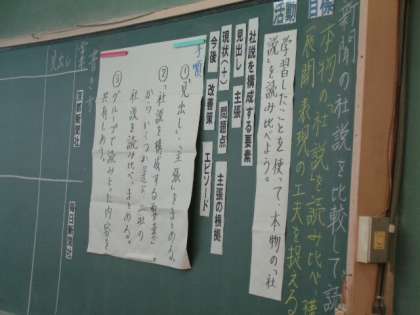 新聞の社説を比較して読
目標
本物の「社説」を読み比べ、
展開、表現の工夫を捉える
活動
学習したことを使って、本物の「社
説」を読み比べよう。
社説を構成する要素
見出し 主張
現状(+) 問題点 主張の根拠
今後 改善策 エピソード
手順
①「見出し」「主張」をまとめる。
②「社説を構成する要素」
を読み比べ、まとめる。
③グループで読みとった内容を
共有しあう。
見出し
毎日新聞社